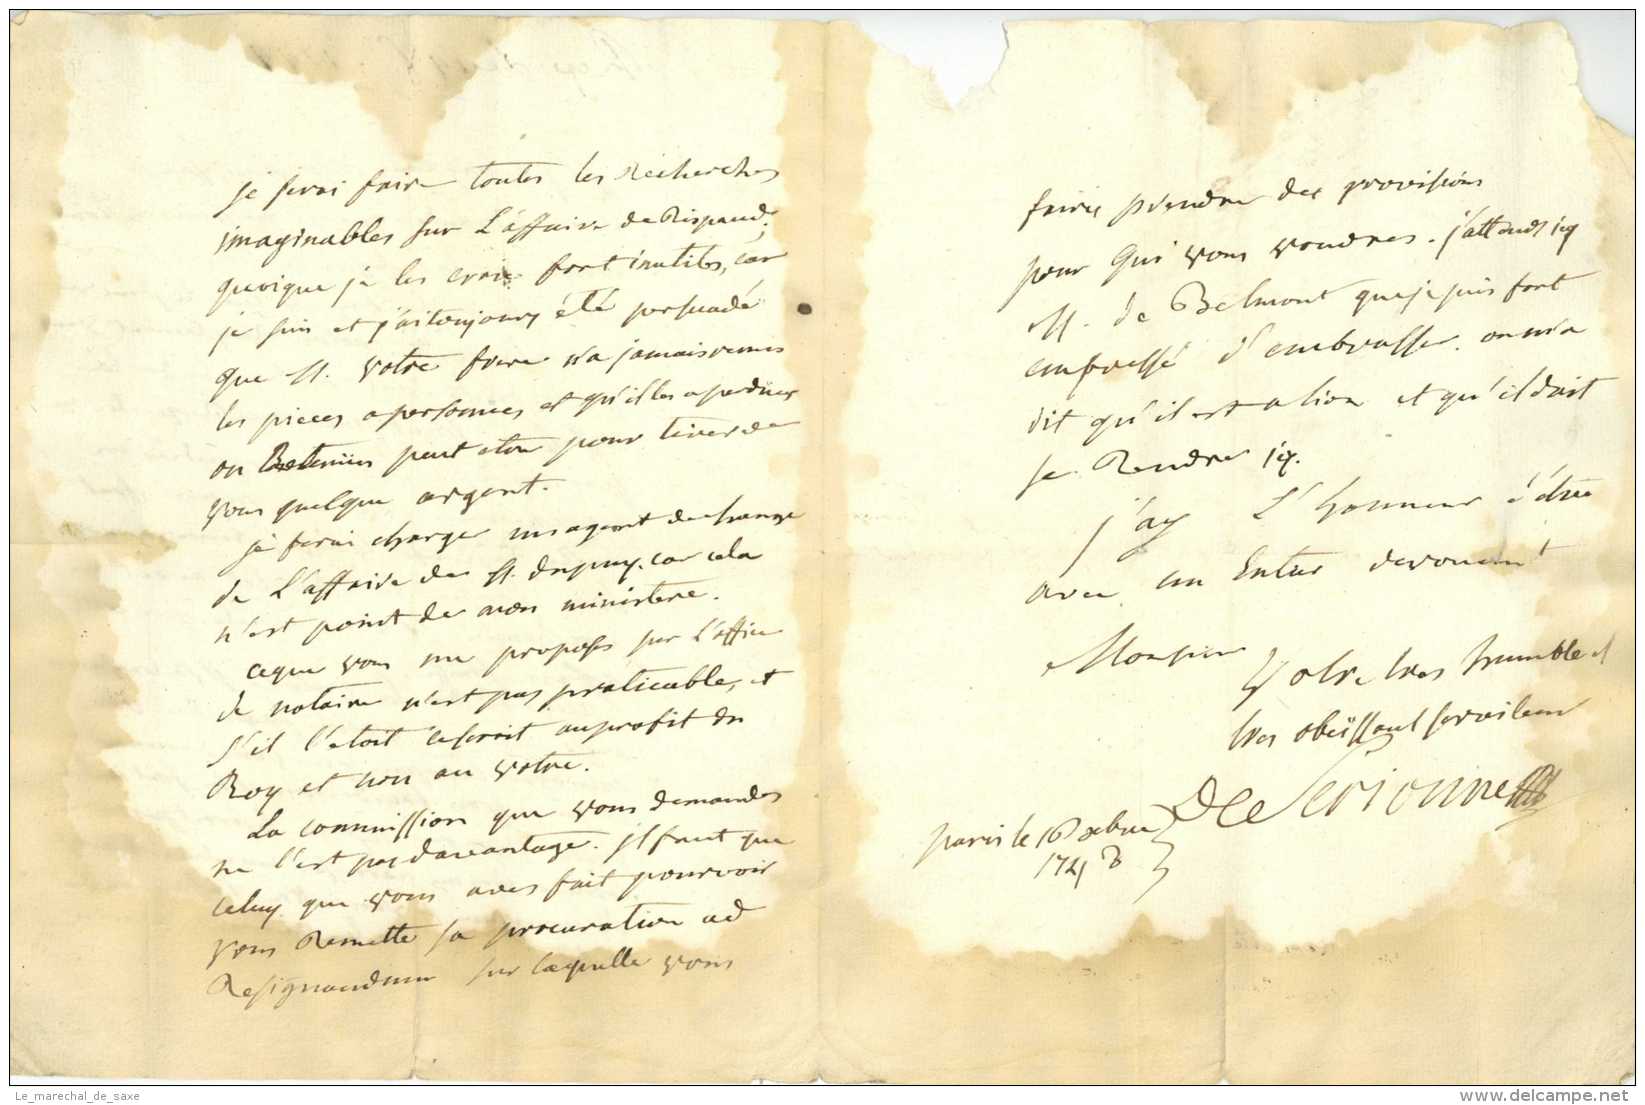 je ferai faire toutes les Recherches
imaginables sur L'affaire de Rispaud,
quoique je les crois fort inutiles, car
je suis et j'ai toujours été persuadé
que M. votre frere n'a jamais remis
les pieces a personnes et qu'il les a perdües
ou Retenües peut etre pour tirer de
vous quelque argent.
je ferai charger un agent de change
de L'affaire de M. dupuy, car cela
n'est point de mon ministere.
ce que vous me proposés sur l'office
de notaire n'est pas praticable, et
s'il l'etoit ce seroit au profit du
Roy et non au votre.
La commission que vous demandes
ne l'est pas davantage. il faut que
celuy que vous aves fait pourvoir
vous Remette sa procuration ad
Resignandum sur laquelle vous
faires prendre des provisions
pour qui vous voudres. j'attends icy
M. de Belmont que je suis fort
empressé d'embrasser. on m'a
dit qu'il est a lion et qu'il doit
se Rendre icy.
j'ay L'honneur d'être
avec un Entier devouement
Monsieur
Votre tres humble et
tres obeissant serviteur
De Serionne
paris le 10 xbre
174
Le_marechal_de_saxe
www.delcampe.net